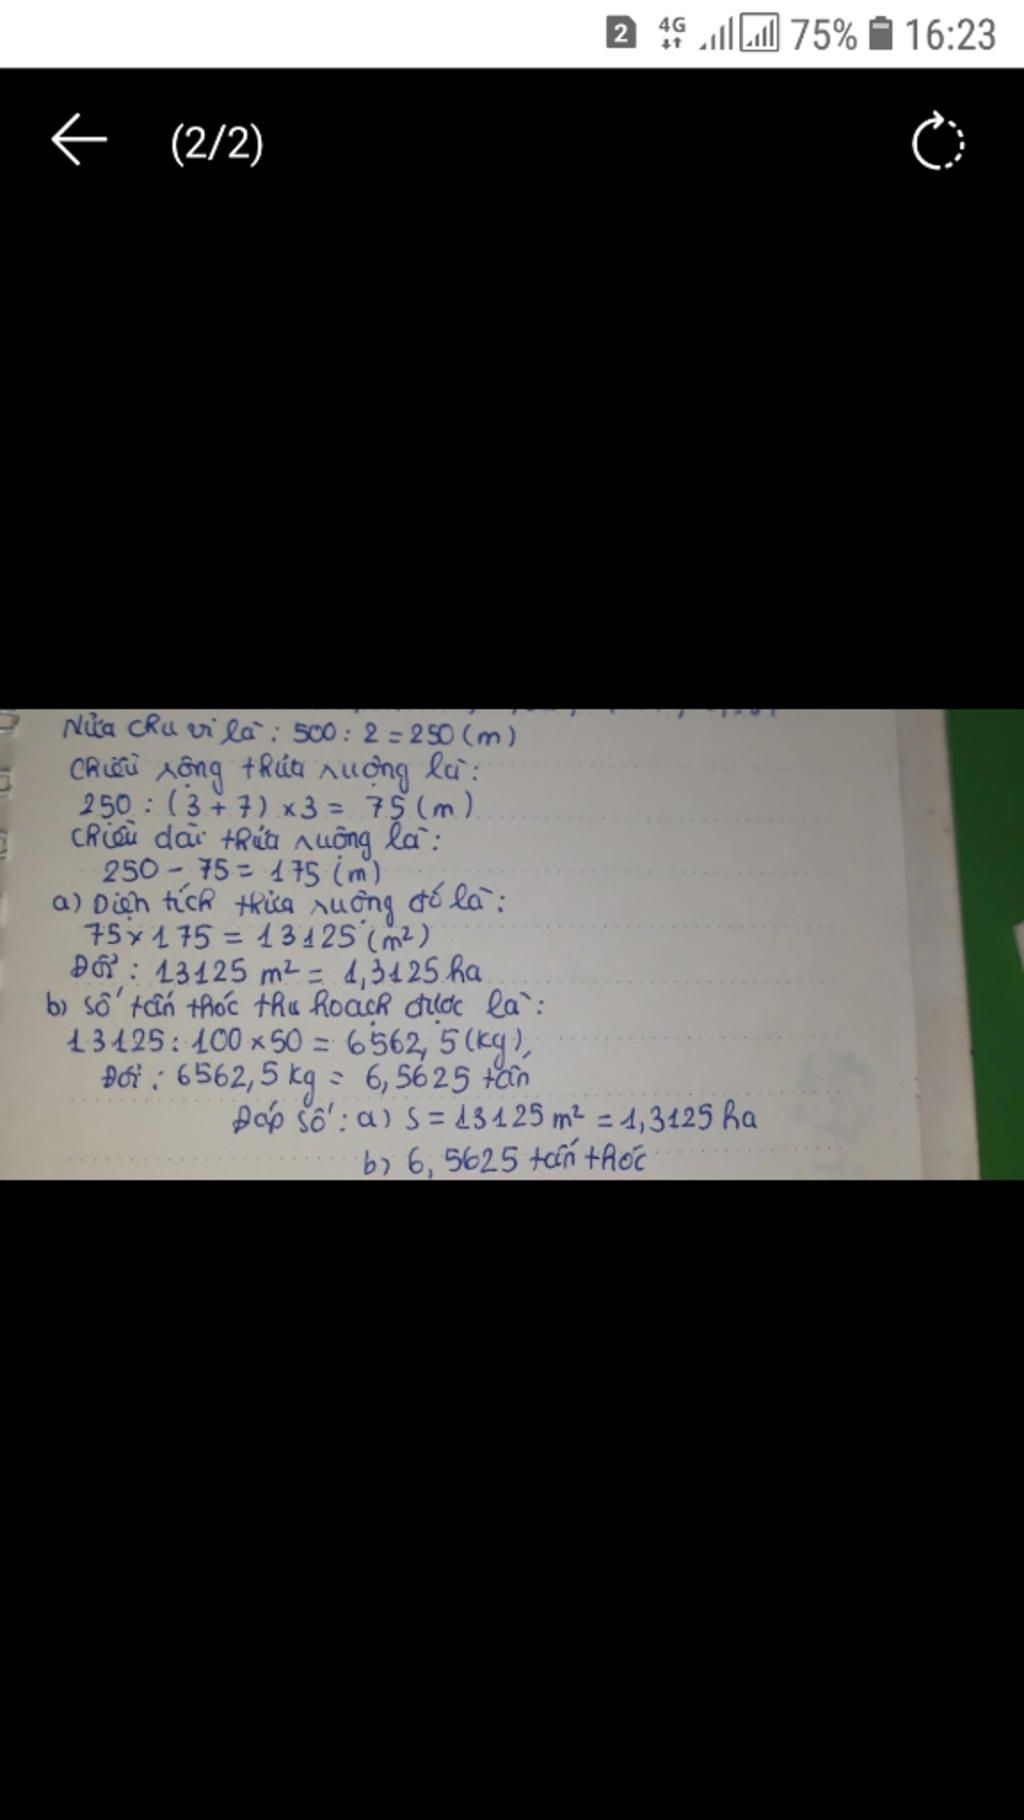 2 4G 75% 16:23
(2/2)
Nửa chu vi là: 500 : 2 = 250 (m)
Chiều rộng thửa ruộng là:
250 : (3 + 7) x 3 = 75 (m)
Chiều dài thửa ruộng là:
250 - 75 = 175 (m)
a) Diện tích thửa ruộng đó là:
75 x 175 = 13125 (m²)
Đổi : 13125 m² = 1,3125 ha
b) Số tấn thóc thu hoạch được là:
13125 : 100 x 50 = 6562,5 (kg)
Đổi : 6562,5 kg = 6,5625 tấn
Đáp số : a) S = 13125 m² = 1,3125 ha
b) 6,5625 tấn thóc